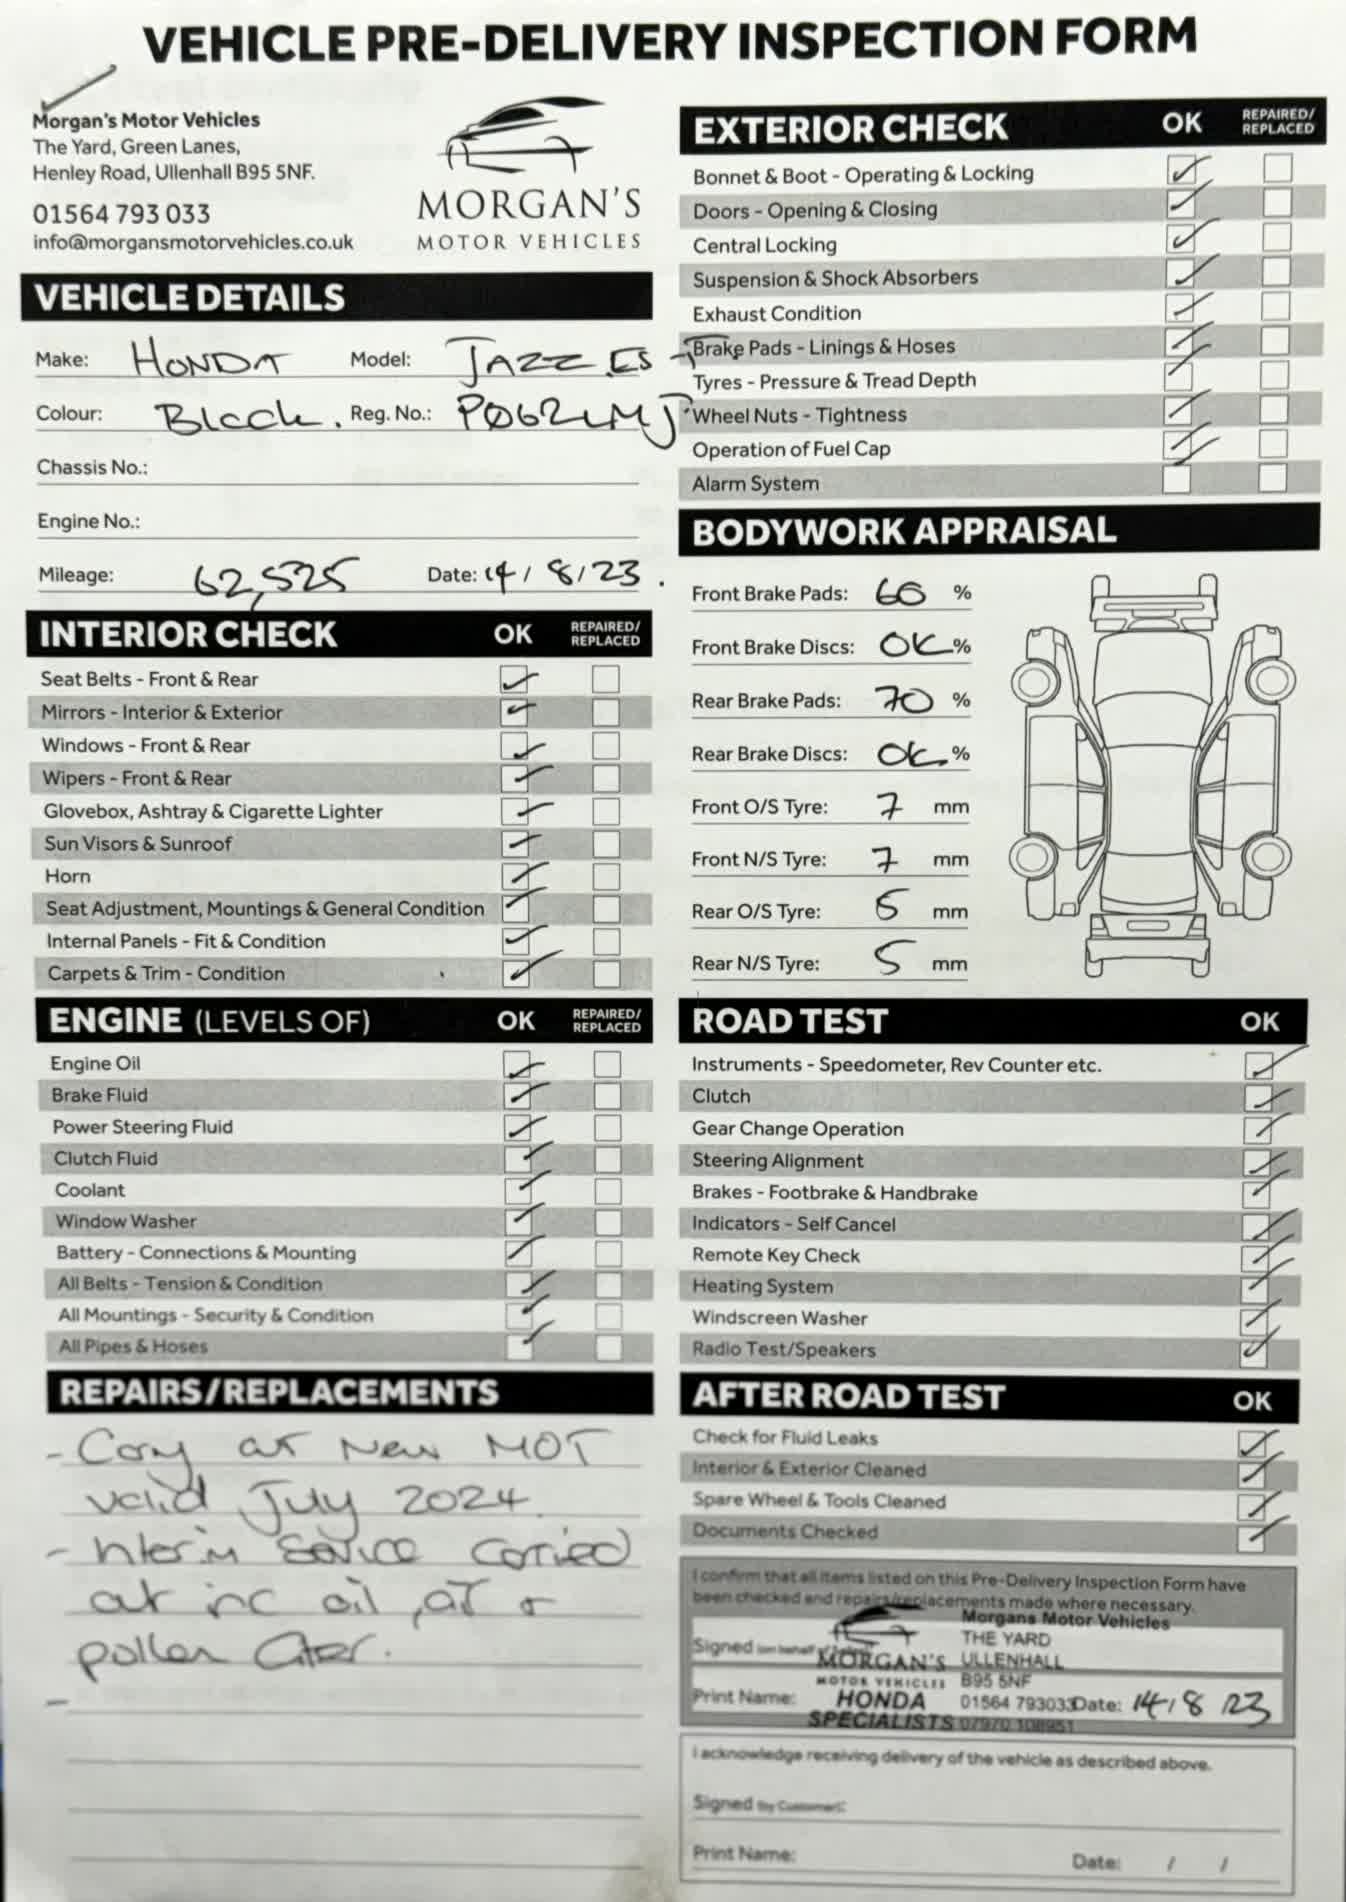 VEHICLE PRE-DELIVERY INSPECTION FORM
Morgan's Motor Vehicles
The Yard, Green Lanes,
Henley Road, Ullenhall B95 5NF.
01564 793 033
info@morgansmotorvehicles.co.uk
MORGAN'S
MOTOR VEHICLES
VEHICLE DETAILS
Make: HONDA Model: JAZZ ES-T
Colour: Black. Reg. No.: PO62LMJ
Chassis No.:
Engine No.:
Mileage: 62,525 Date: 14/8/23.
INTERIOR CHECK OK REPAIRED/
REPLACED
Seat Belts - Front & Rear
Mirrors - Interior & Exterior
Windows - Front & Rear
Wipers - Front & Rear
Glovebox, Ashtray & Cigarette Lighter
Sun Visors & Sunroof
Horn
Seat Adjustment, Mountings & General Condition
Internal Panels - Fit & Condition
Carpets & Trim - Condition
ENGINE (LEVELS OF) OK REPAIRED/
REPLACED
Engine Oil
Brake Fluid
Power Steering Fluid
Clutch Fluid
Coolant
Window Washer
Battery - Connections & Mounting
All Belts - Tension & Condition
All Mountings - Security & Condition
All Pipes & Hoses
REPAIRS/REPLACEMENTS
- Cary out New MOT
valid July 2024
- Interim Service carried
out inc oil, air +
pollen filter.
-
EXTERIOR CHECK OK REPAIRED/
REPLACED
Bonnet & Boot - Operating & Locking
Doors - Opening & Closing
Central Locking
Suspension & Shock Absorbers
Exhaust Condition
Brake Pads - Linings & Hoses
Tyres - Pressure & Tread Depth
Wheel Nuts - Tightness
Operation of Fuel Cap
Alarm System
BODYWORK APPRAISAL
Front Brake Pads: 60 %
Front Brake Discs: OK %
Rear Brake Pads: 70 %
Rear Brake Discs: OK. %
Front O/S Tyre: 7 mm
Front N/S Tyre: 7 mm
Rear O/S Tyre: 5 mm
Rear N/S Tyre: 5 mm
ROAD TEST OK
Instruments - Speedometer, Rev Counter etc.
Clutch
Gear Change Operation
Steering Alignment
Brakes - Footbrake & Handbrake
Indicators - Self Cancel
Remote Key Check
Heating System
Windscreen Washer
Radio Test/Speakers
AFTER ROAD TEST OK
Check for Fluid Leaks
Interior & Exterior Cleaned
Spare Wheel & Tools Cleaned
Documents Checked
I confirm that all items listed on this Pre-Delivery Inspection Form have
been checked and repairs/replacements made where necessary.
Morgans Motor Vehicles
THE YARD
Signed
MORGAN'S ULLENHALL
MOTOR VEHICLES B95 5NF
Print Name: HONDA 01564 793033 Date: 14/8/23
SPECIALISTS 07970 108951
I acknowledge receiving delivery of the vehicle as described above.
Signed (by Customer):
Print Name: Date: / /